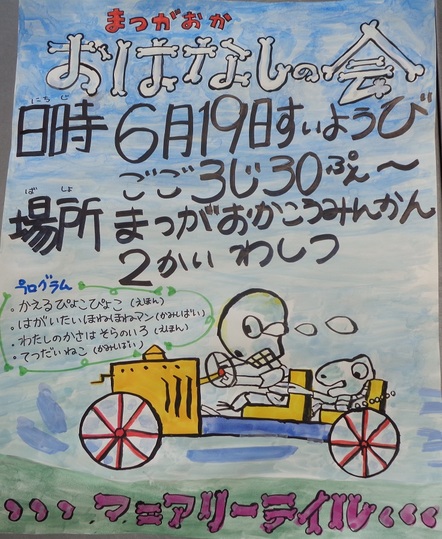 まつがおか
おはなしの会
にちじ
日時 6月19日すいようび
ごご3じ30ぷん～
ばしょ
場所 まつがおかこうみんかん
2かい わしつ
プログラム
・かえるぴょこぴょこ(えほん)
・はがいたいほねほねマン(かみしばい)
・わたしのかさはそらのいろ(えほん)
・てつだいねこ(かみしばい)
フェアリーテイル